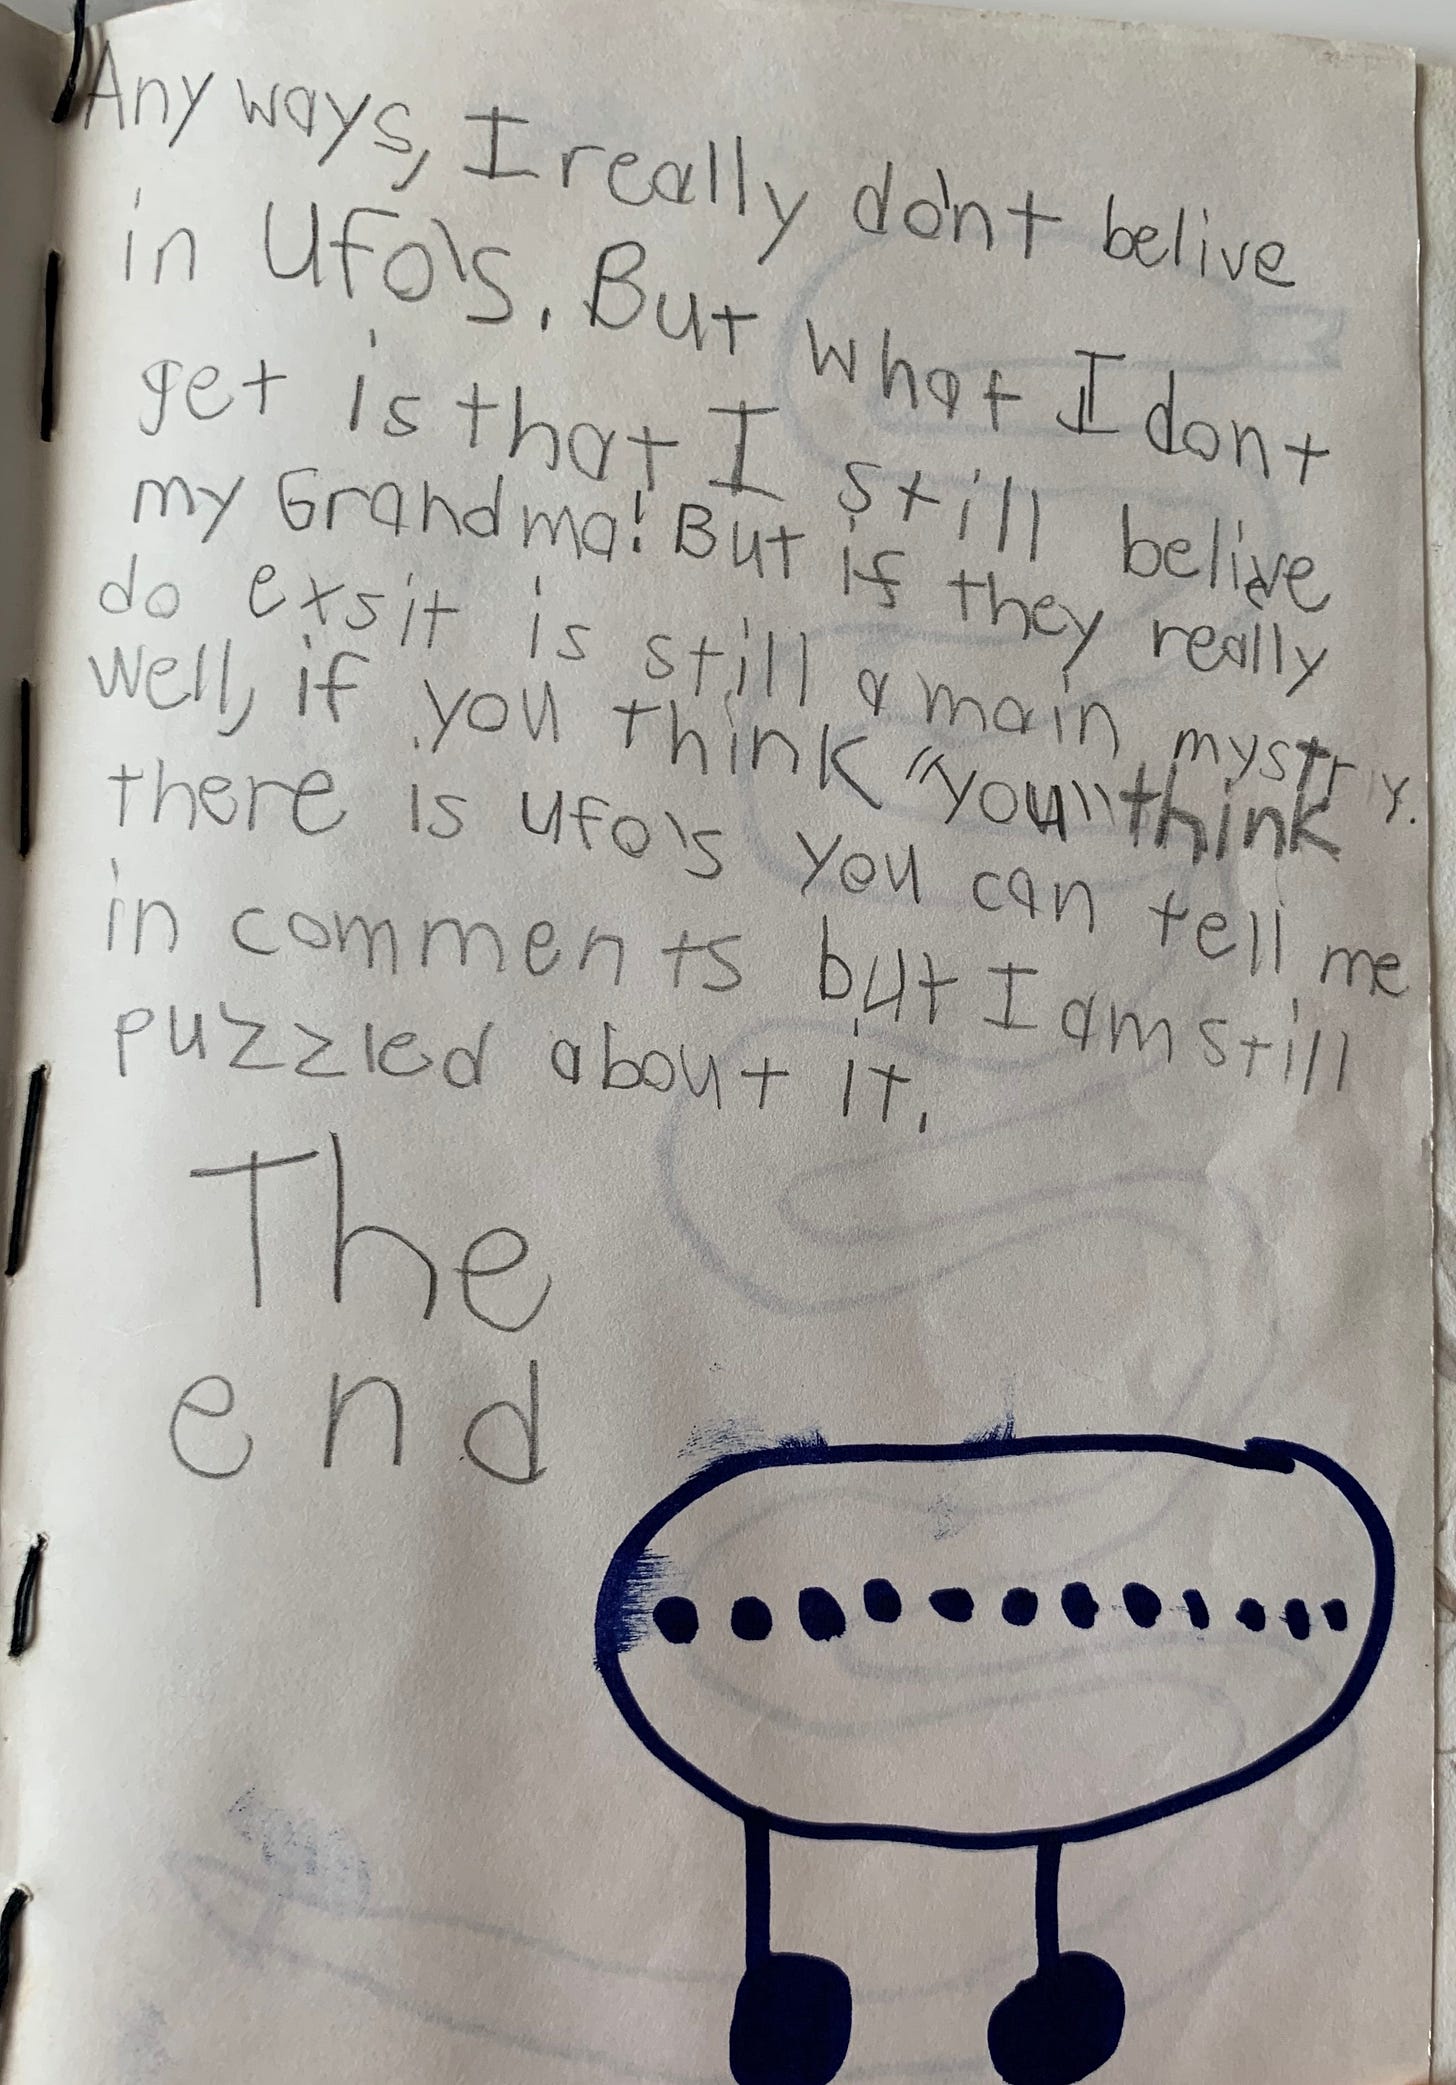 Any ways, I really do'nt belive
in Ufo's. But what I dont
get is that I still belive
my Grandma! But if they really
do exsit is still a main mystry.
Well, if you think "you" think
there is ufo's you can tell me
in comments but I am still
puzzled about it.
The
end